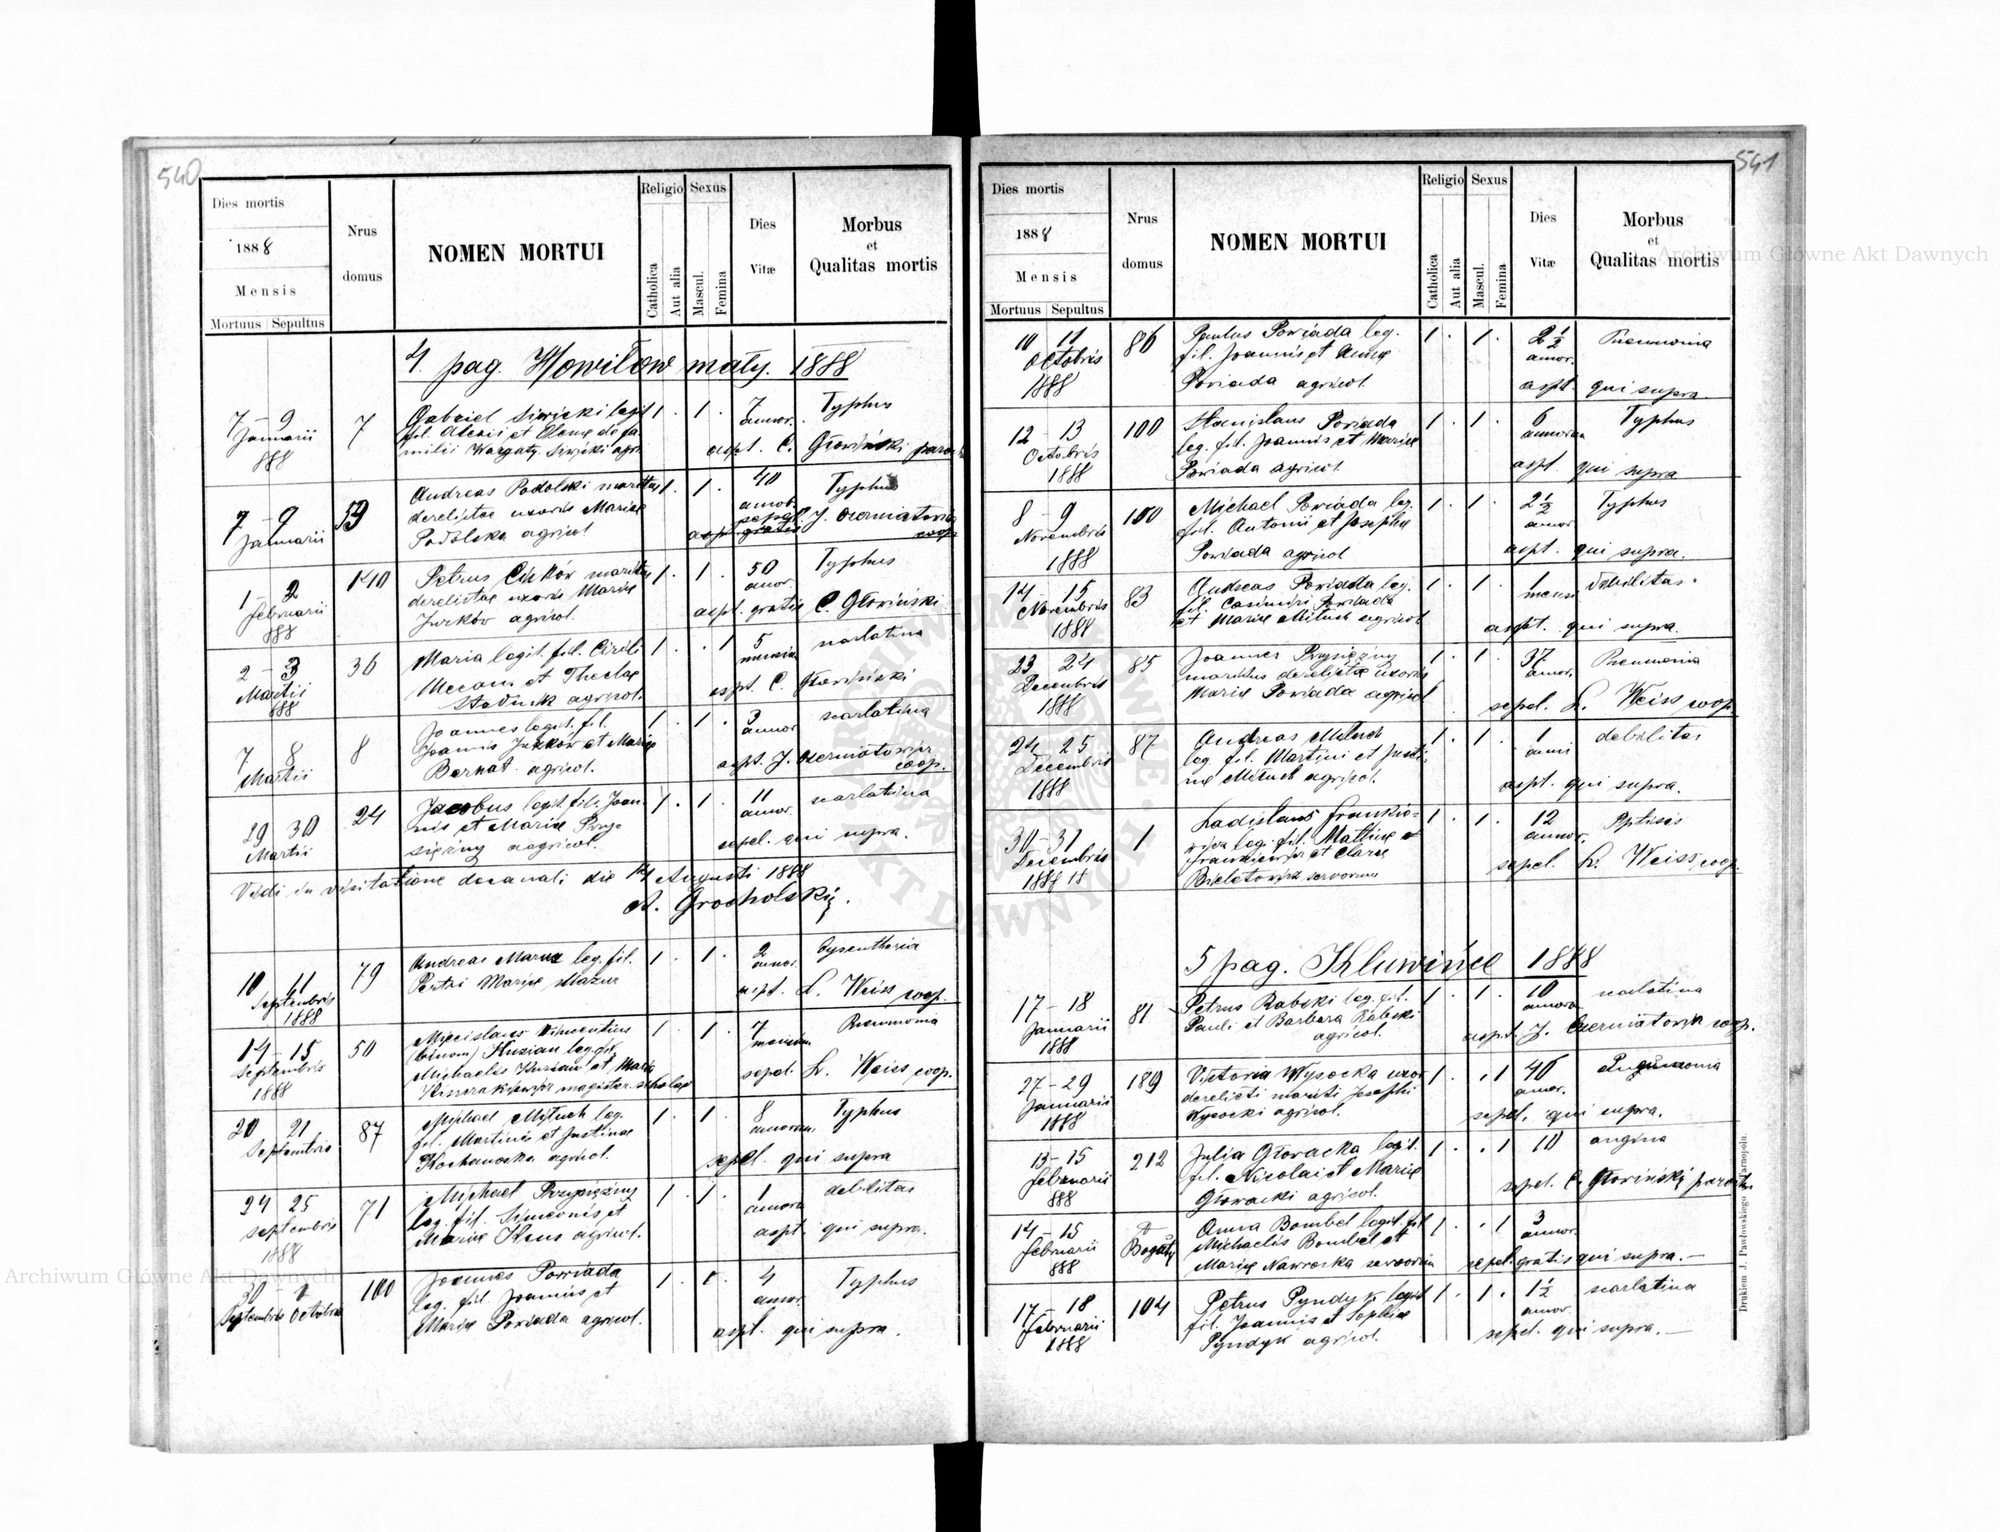 540
Dies mortis
1888
Mensis
Mortuus Sepultus
Nrus
domus
NOMEN MORTUI
Religio
Catholica
Aut alia
Sexus
Mascul.
Femina
Dies
Vitæ
Morbus
et
Qualitas mortis
4. pag. Howiłow mały. 1888
7 – 9
Januarii
888
7
Gabriel Siwicki legit
fil. Alexii et Elenæ de fa
milii Wargaty Siwicki agr.
1 . 1 .
7
annor.
Typhus
aspt. C. Głowiński paroch
7 – 9
Januarii
59
Andreas Podolski maritus
derelictae uxoris Mariæ
Podolska agricol
1 . 1 .
40
annor.
sepel.
gratis
Typhus
J. Czerniatowicz
coop.
1 – 2
Februarii
888
140
Petrus maritus
derelictae uxoris Mariæ
Jurków agricol.
1 . 1 .
50
annor.
Typhus
aspt. gratis C. Głowiński
2 – 3
Martii
888
36
Maria legit. fil. Cirili
et Theclae
Stadnik agricol.
1 . . 1
5
mensium
scarlatina
aspt. C. Głowiński
7 8
Martii
8
Joannes legit. fil.
Joannis Jurków et Mariæ
Bernat agricol.
1 . 1 .
3
annor
scarlatina
aspt. J. Czerniatowicz
coop.
29 30
Martii
24
Jacobus legit. fil. Joan
nis et Mariæ Przy-
siężny agricol.
1 . 1 .
11
annor.
scarlatina
sepel. qui supra.
Vidi in visitatione decanali die 14 Augusti 1888
A. Grocholski
10 11
Septembris
1888
79
Andreas Mazur leg. fil.
Petri Mariæ Mazur
1 . 1 .
2
annor.
Dysentheria
aspt. L. Weiss coop.
14 – 15
Septembris
1888
50
Miecislaus Vincentius
(binom) Kuzian leg. fil.
Michaelis Kuzian et Mariæ
magistor. scholae
1 . 1 .
7
mensium
Pneumonia
sepel. L. Weiss coop.
20 21
Septembris
87
Michael Mituch leg.
fil. Martini et Justinae
Kochanoska agricol.
1 . 1 .
8
annorum
Typhus
sepel. qui supra
24 25
septembris
1888
71
Michael Przysiężny
leg. fil. Simeonis et
Mariæ Kens agricol.
1 . 1 .
1
annor
debilitas
aspt. qui supra.
30 – 1
Septembris Octobris
100
Joannes Powiada
leg. fil. Joannis et
Mariæ Powiada agricol.
1 . 1 .
4
annor.
Typhus
aspt. qui supra.
541
Dies mortis
1888
Mensis
Mortuus Sepultus
Nrus
domus
NOMEN MORTUI
Religio
Catholica
Aut alia
Sexus
Mascul.
Femina
Dies
Vitæ
Morbus
et
Qualitas mortis
10 11
Octobris
1888
86
Paulus Powiada leg.
fil. Joannis et Annæ
Powiada agricol
1 . 1 .
2 1/2
annor.
Pneumonia
aspt. qui supra.
12 – 13
Octobris
1888
100
Stanislaus Powiada
leg. fil. Joannis et Mariæ
Powiada agricol
1 . 1 .
6
annorum
Typhus
aspt. qui supra
8 – 9
Novembris
1888
100
Michael Powiada leg.
fil. Antonii et Josephæ
Powiada agricol
1 . 1 .
2 1/2
annor
Typhus
aspt. qui supra.
14 15
Novembris
1888
83
Andreas Powiada leg.
fil. Casimiri Powiada
et Mariæ Mituch agricol
1 . 1 .
1
mensi
debilitas.
aspt. qui supra.
23 24
Decembris
1888
85
Joannes Przysiężny
maritus derelictæ uxoris
Mariæ Powiada agricol
1 . 1 .
37
annor.
Pneumonia
sepel. L. Weiss coop.
24 25
Decembris
1888
87
Andreas Mituch
leg. fil. Martini et Justi-
næ Mituch agricol.
1 . 1 .
1
anni
debilitas
aspt. qui supra.
30 – 31
Decembris
1888
1
Ladislaus Frankie-
wicz leg. fil. Mathiæ
Frankiewicz et Claræ
servorum
1 . 1 .
12
annor.
Pptisis
sepel. L. Weiss coop.
5 pag. Kluwińce 1888
17 – 18
Januarii
1888
81
Petrus Babski leg. fil.
Pauli et Barbara Babski
agricol.
1 . 1 .
10
annor
scarlatina
aspt. J. Czerniatowicz coop.
27 – 29
Januarii
1888
189
Victoria Wysocka uxor
derelicti mariti Josephi
Wysocki agricol.
1 . . 1
46
annor.
Pneumonia
sepel. qui supra.
13 – 15
Februarii
888
212
Julia Głowacka legit.
fil. Nicolai et Mariæ
Głowacki agricol.
1 . . 1
10
angina
sepel. C. Głowiński parochus
14 – 15
Februarii
888
Bogaty
Anna Bombel legit. fil
Michaelis Bombel et
Mariæ Nawrocka servorum
1 . . 1
3
annor.
sepel. gratis qui supra. –
17 – 18
Februarii
1888
104
Petrus Pyndyk legit
fil. Joannis et Sophiæ
Pyndyk agricol.
1 . 1 .
1 1/2
annor.
scarlatina
sepel. qui supra. –
Drukiem J. Pawłowskiego Tarnopolu.
Archiwum Główne Akt Dawnych
Archiwum Główne Akt Dawnych